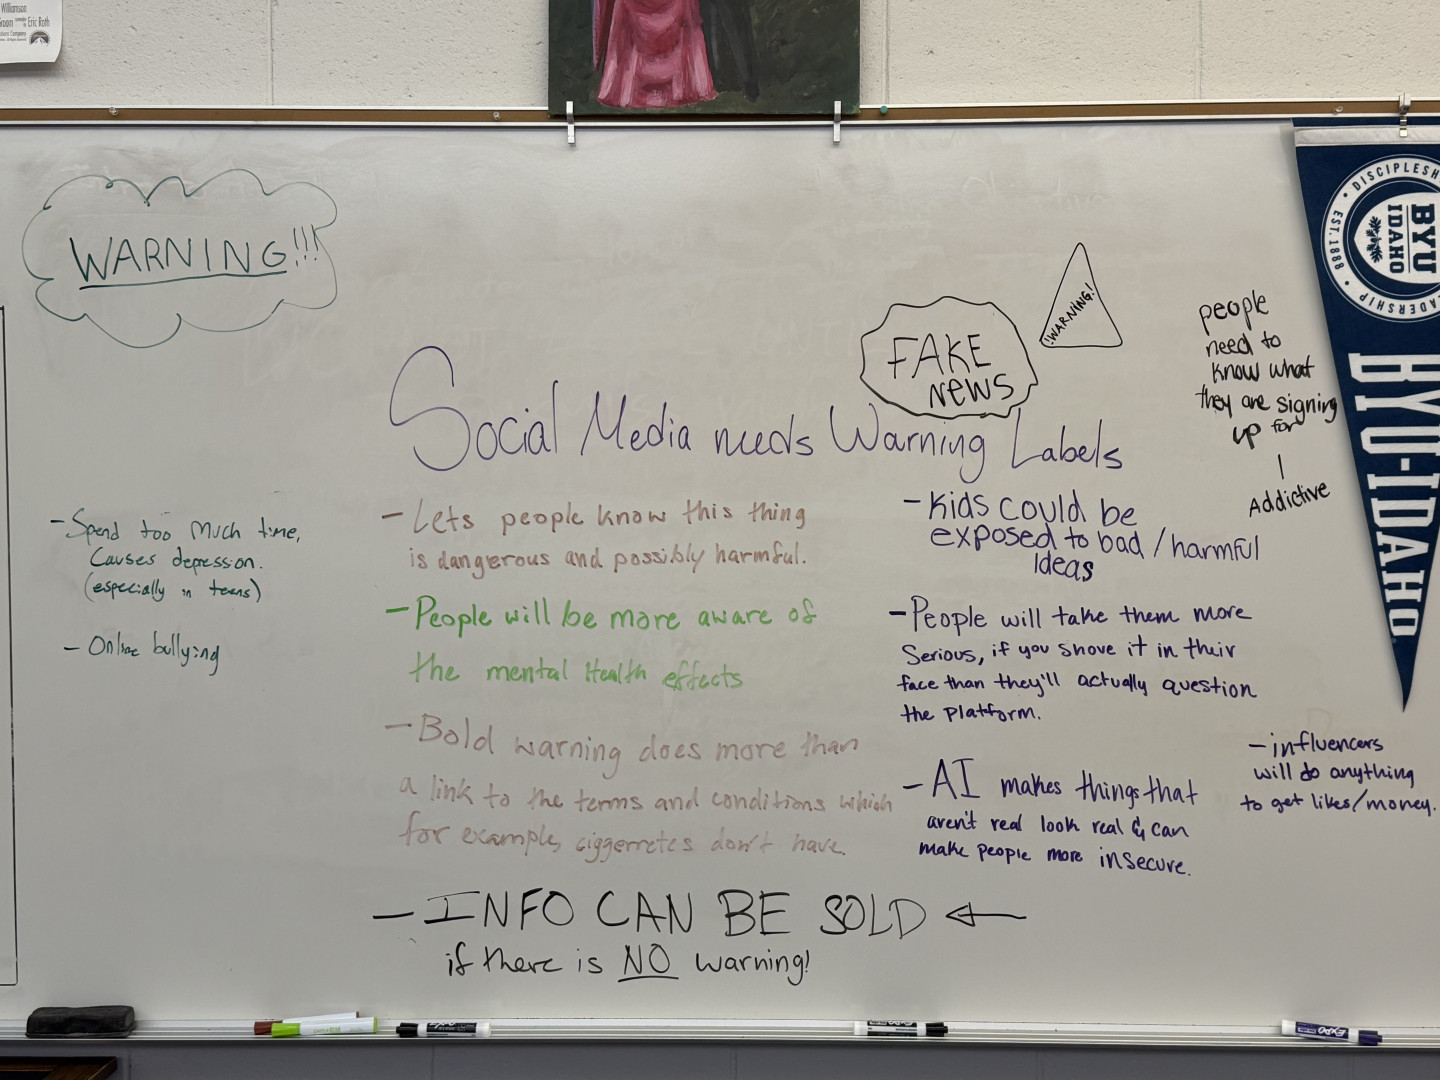 Williamson
Groom Eric Roth
WARNING!!!
- Spend too much time,
Causes depression.
(especially in teens)
- Online bullying
FAKE
NEWS
!WARNING!
Social Media needs Warning Labels
- Lets people know this thing
is dangerous and possibly harmful.
- People will be more aware of
the mental Health effects
- Bold warning does more than
a link to the terms and conditions which
for example, ciggerretes don't have.
- INFO CAN BE SOLD ←
if there is NO warning!
- Kids could be
exposed to bad/harmful
Ideas
- People will take them more
Serious, if you shove it in their
face than they'll actually question
the platform.
- AI makes things that
aren't real look real & can
make people more insecure.
people
need to
know what
they are signing
up for
|
Addictive
- influencers
will do anything
to get likes/money.
DISCIPLESH
EST. 1888
BYU
IDAHO
EADERSHIP
BYU-IDAHO
EXPO
EXPO
EXPO